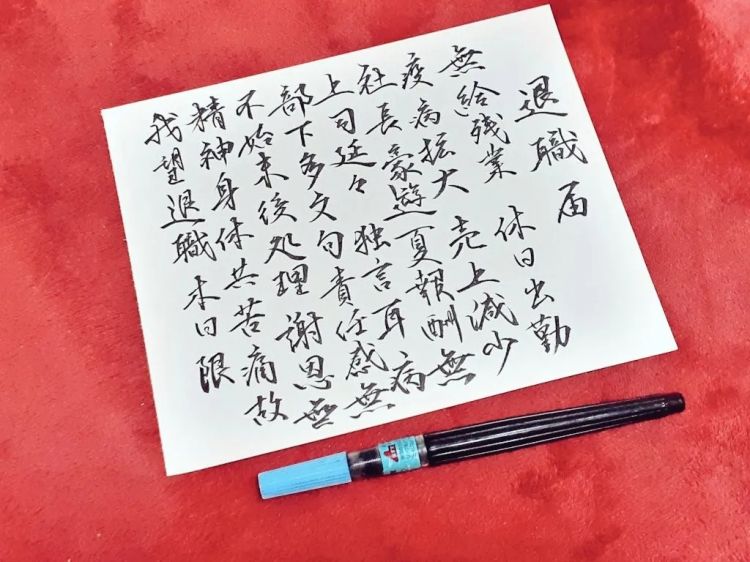 退職届
無給残業 休日出勤
疫病拡大 売上減少
社長豪遊 夏報酬無
上司延々 独言耳病
部下多文句 責任感無
不始末後処理 謝恩無
精神身体共苦痛故
我望退職 本日限